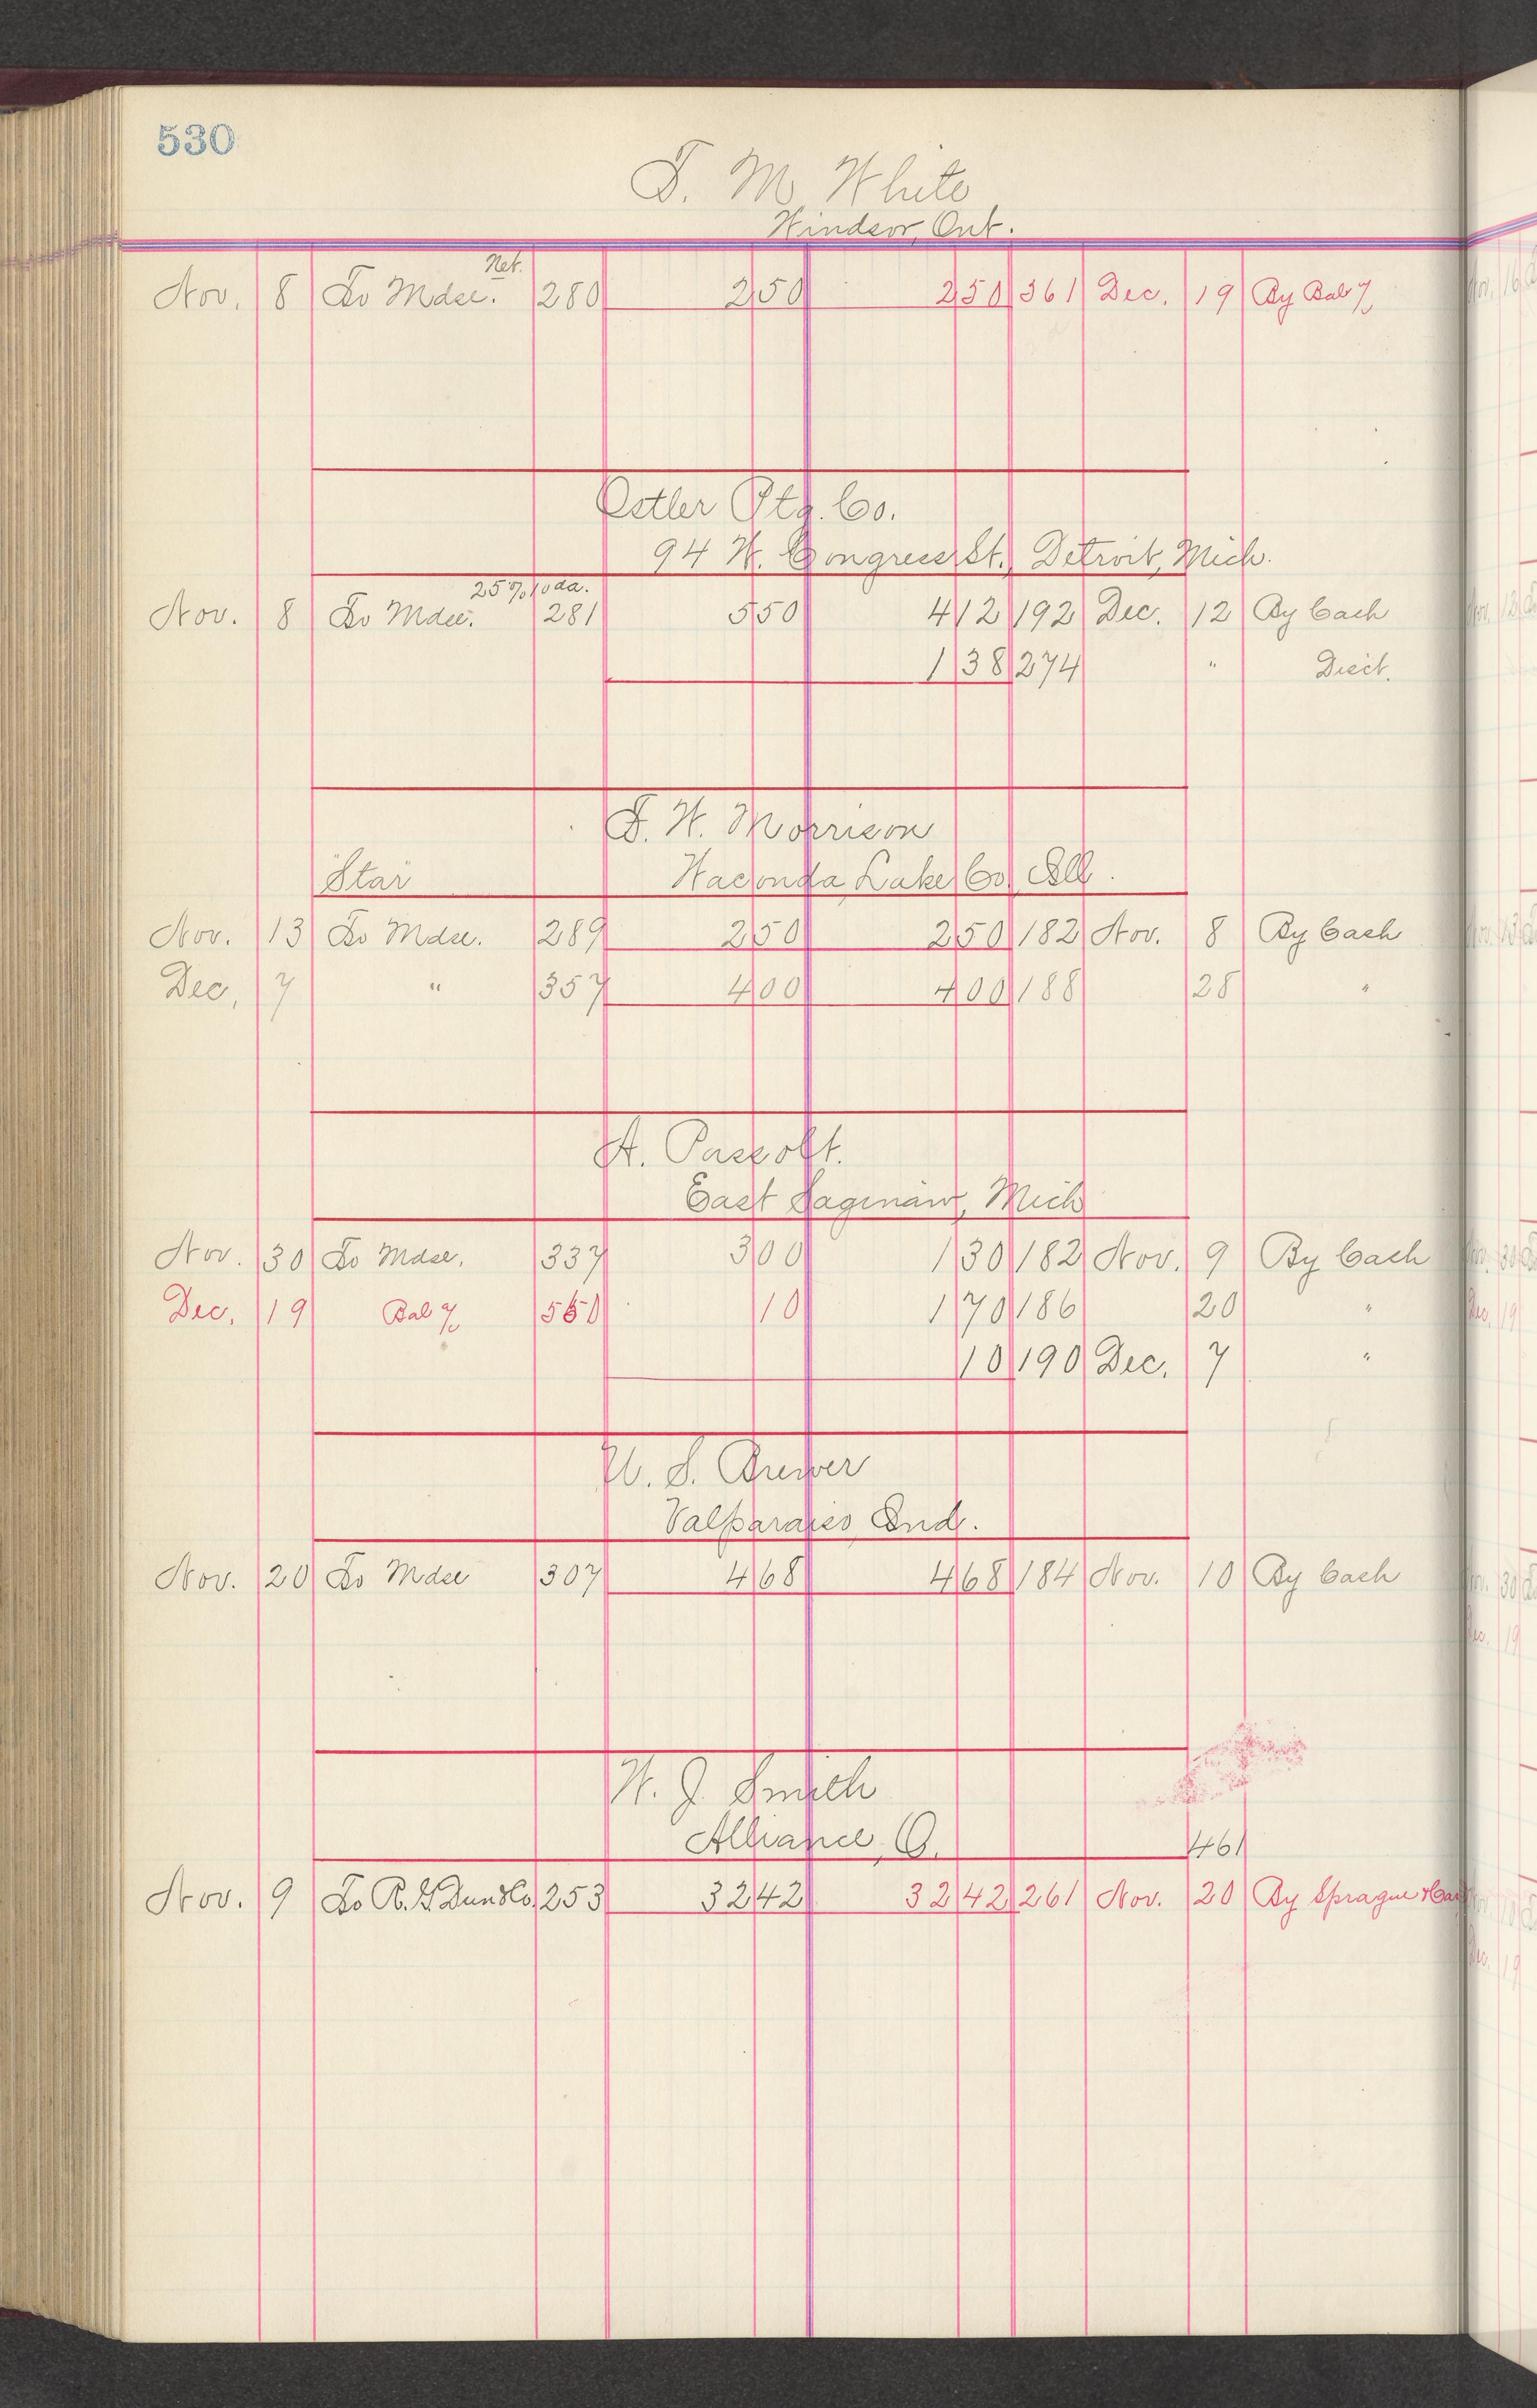 530
F. M. White
Windsor, Ont.
Net.
Nov. 8 To Mdse. 280 2 50 2 50 361 Dec. 19 By Bal %
Ostler Ptg. Co.
94 W. Congress St., Detroit, Mich.
25% 10 da.
Nov. 8 To Mdse. 281 5 50 4 12 192 Dec. 12 By Cash
1 38 274 " Disct.
F. W. Morrison
"Star" Waconda Lake Co., Ill.
Nov. 13 To Mdse. 289 2 50 2 50 182 Nov. 8 By Cash
Dec. 7 " 357 4 00 4 00 188 28 "
A. Passolt.
East Saginaw, Mich
Nov. 30 To Mdse. 337 3 00 1 30 182 Nov. 9 By Cash
Dec. 19 Bal % 560 10 1 70 186 20 "
10 190 Dec. 7 "
U. S. Brewer
Valparaiso, Ind.
Nov. 20 To Mdse 307 4 68 4 68 184 Nov. 10 By Cash
W. J. Smith
Alliance, O.
461
Nov. 9 To R. G. Dun & Co. 253 32 42 32 42 261 Nov. 20 By Sprague